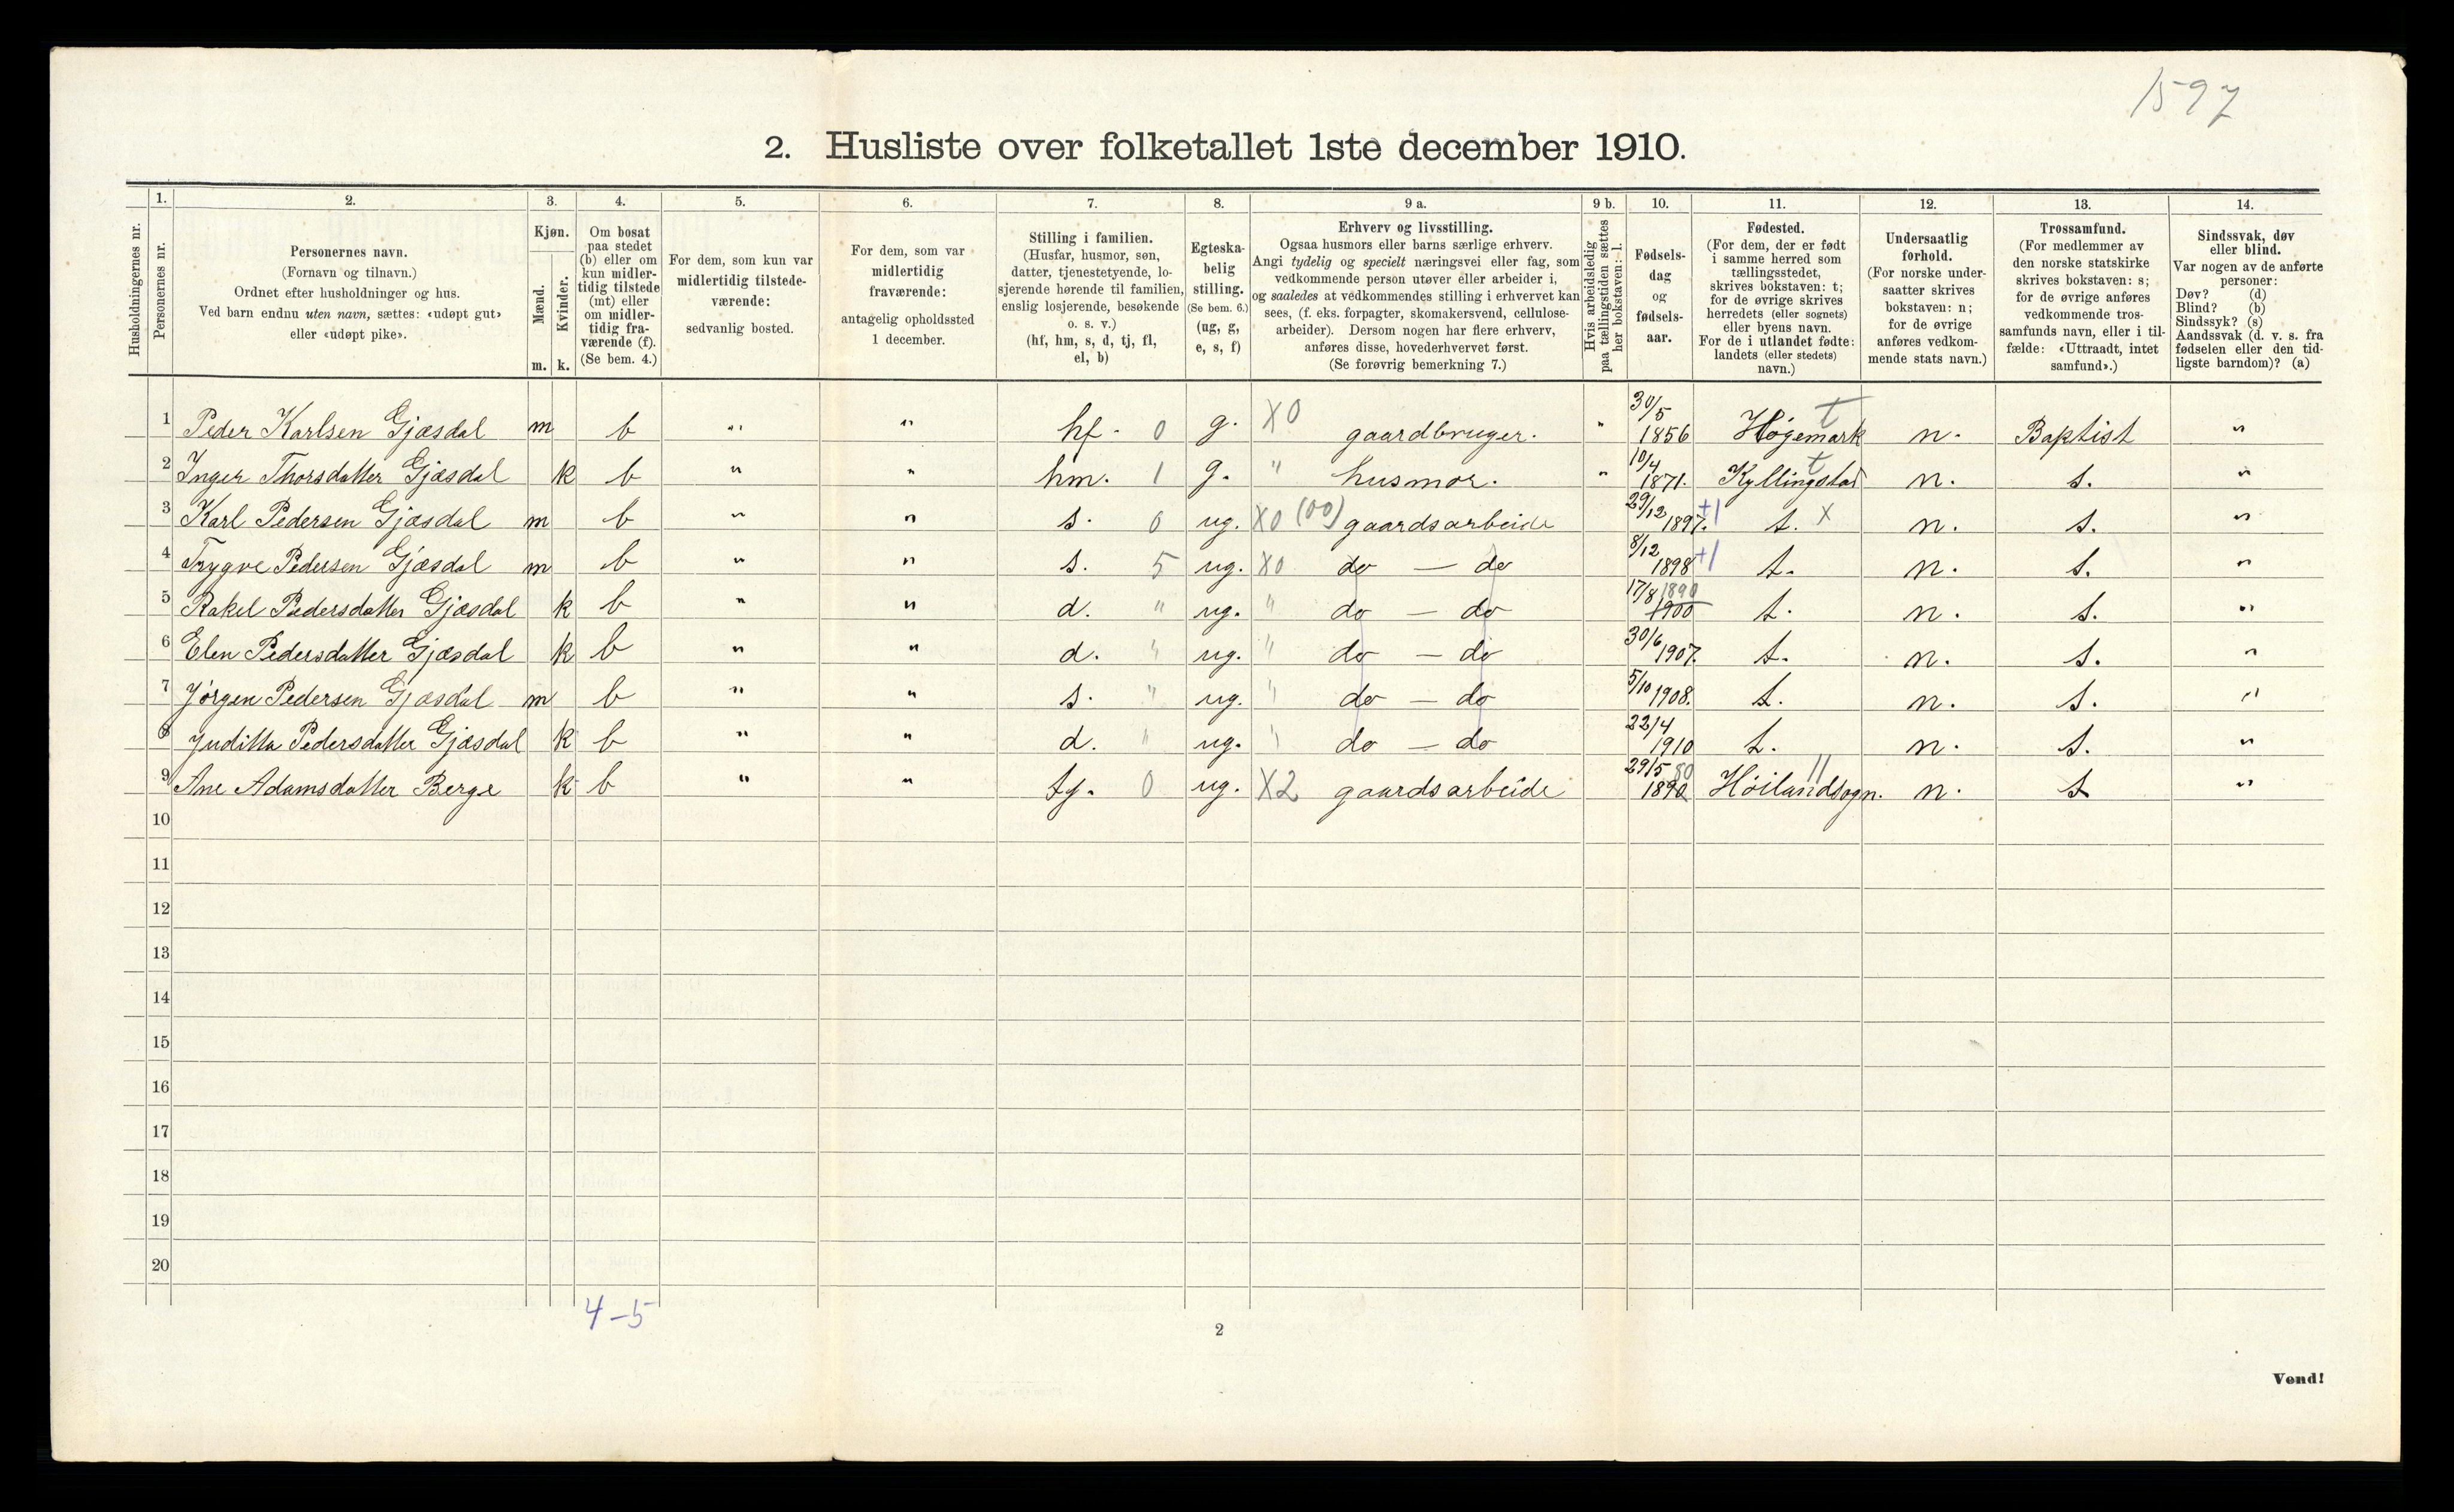 1597
2. Husliste over folketallet 1ste december 1910.
Husholdningernes nr.
1. Personernes nr.
2. Personernes navn. (Fornavn og tilnavn.) Ordnet efter husholdninger og hus. Ved barn endnu uten navn, sættes: «udøpt gut» eller «udøpt pike».
3. Kjøn. Mænd. m. Kvinder. k.
4. Om bosat paa stedet (b) eller om kun midlertidig tilstede (mt) eller om midlertidig fraværende (f). (Se bem. 4.)
5. For dem, som kun var midlertidig tilstedeværende: sedvanlig bosted.
6. For dem, som var midlertidig fraværende: antagelig opholdssted 1 december.
7. Stilling i familien. (Husfar, husmor, søn, datter, tjenestetyende, losjerende hørende til familien, enslig losjerende, besøkende o. s. v.) (hf, hm, s, d, tj, fl, el, b)
8. Egteskabelig stilling. (Se bem. 6.) (ug, g, e, s, f)
9 a. Erhverv og livsstilling. Ogsaa husmors eller barns særlige erhverv. Angi tydelig og specielt næringsvei eller fag, som vedkommende person utøver eller arbeider i, og saaledes at vedkommendes stilling i erhvervet kan sees, (f. eks. forpagter, skomakersvend, cellulosearbeider). Dersom nogen har flere erhverv, anføres disse, hovederhvervet først. (Se forøvrig bemerkning 7.)
9 b. Hvis arbeidsledig paa tællingstiden sættes her bokstaven: l.
10. Fødselsdag og fødselsaar.
11. Fødested. (For dem, der er født i samme herred som tællingsstedet, skrives bokstaven: t; for de øvrige skrives herredets (eller sognets) eller byens navn. For de i utlandet fødte: landets (eller stedets) navn.)
12. Undersaatlig forhold. (For norske undersaatter skrives bokstaven: n; for de øvrige anføres vedkommende stats navn.)
13. Trossamfund. (For medlemmer av den norske statskirke skrives bokstaven: s; for de øvrige anføres vedkommende trossamfunds navn, eller i tilfælde: «Uttraadt, intet samfund».)
14. Sindssvak, døv eller blind. Var nogen av de anførte personer: Døv? (d) Blind? (b) Sindssyk? (s) Aandssvak (d. v. s. fra fødselen eller den tidligste barndom)? (a)
1 Peder Karlsen Gjæsdal m b " " hf. 0 g. X0 gaardbruger. " 30/5 1856 Høgemark t n. Baptist "
2 Inger Thorsdatter Gjæsdal k b " " hm. 1 g. " husmor. " 10/4 1871. Kyllingstad t n. s. "
3 Karl Pedersen Gjæsdal m b " " s. 0 ug. X0 (00) gaardsarbeide 29/12 1897. +1 t. X n. s. "
4 Trygve Pedersen Gjæsdal m b " " s. 5 ug. X0 do — do 8/12 1898 +1 t. n. s. "
5 Rakel Pedersdatter Gjæsdal k b " " d. " ug. " do — do 17/8 1890 1900 t. n. s. "
6 Elen Pedersdatter Gjæsdal k b " " d. " ug. " do — do 30/6 1907. t. n. s. "
7 Jørgen Pedersen Gjæsdal m b " " s. " ug. " do — do 5/10 1908. t. n. s. "
8 Juditta Pedersdatter Gjæsdal k b " " d. " ug. " do — do 22/4 1910 t. n. s. "
9 Ane Adamsdatter Berge k b " " ty. 0 ug. X2 gaardsarbeide 29/5 80 1890 Höilandsogn. 11 n. s "
10
11
12
13
14
15
16
17
18
19
20
4–5
2
Vend!